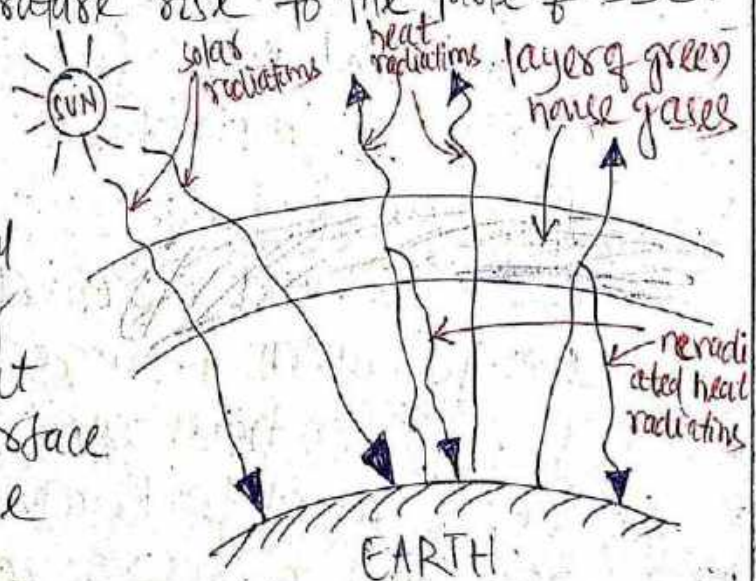 rature rise to the
SUN
solar
radiations
heat
radiations
layer of green
house gases
reradi
ated heat
radiations
rface
e
EARTH